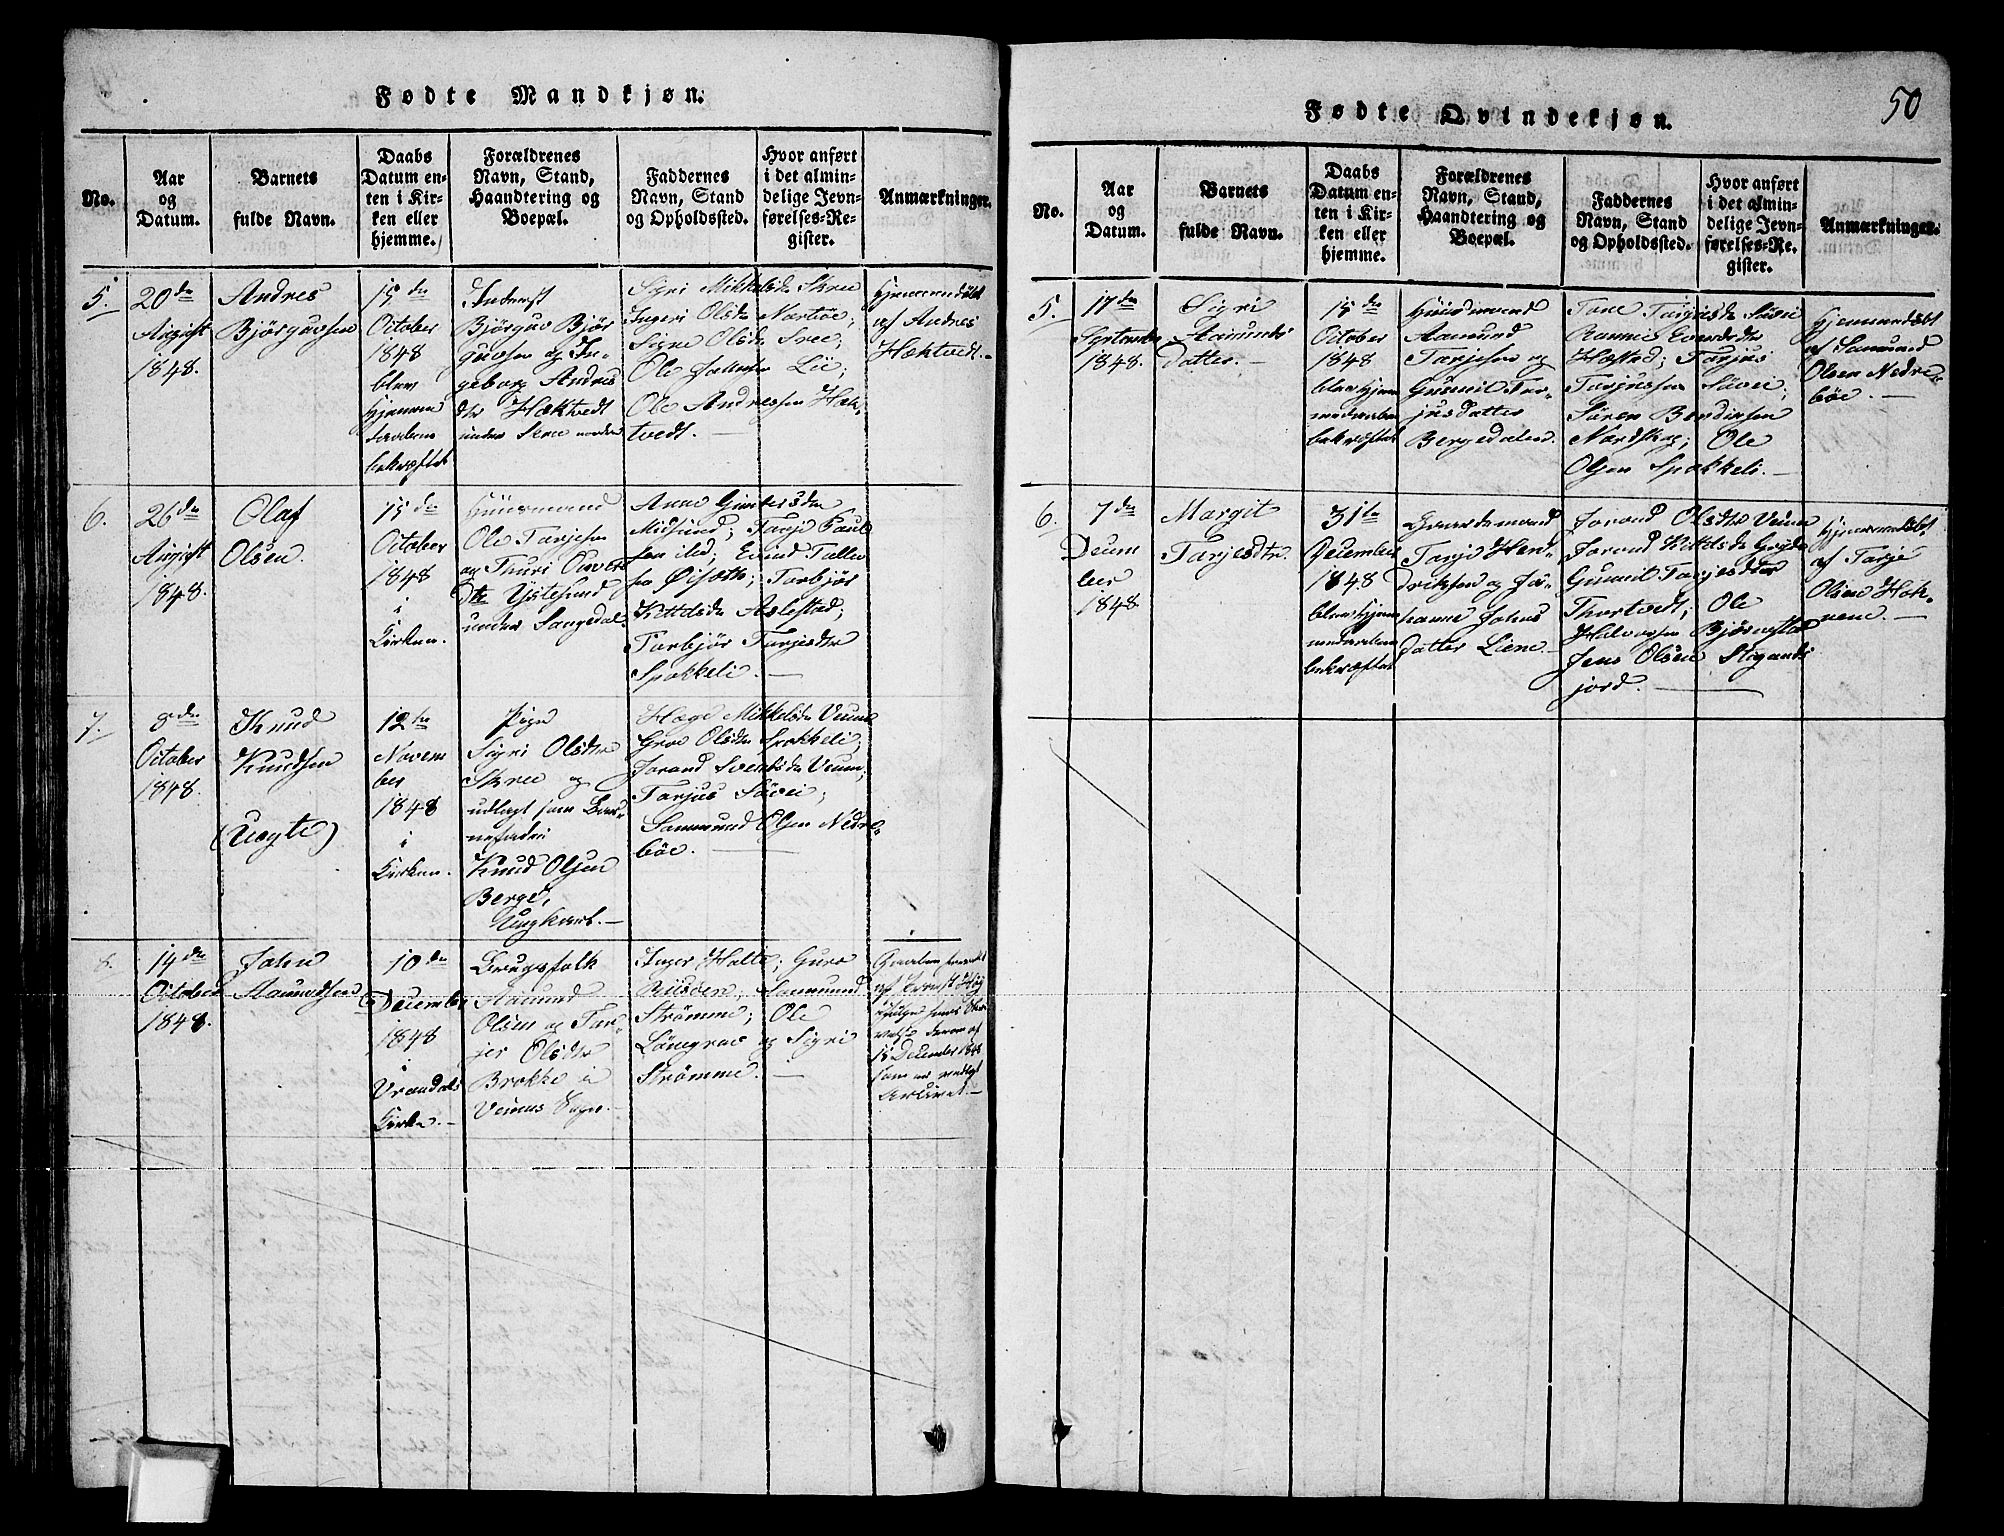 Fødte Mandkjøn.
No.
Aar
og
Datum.
Barnets
fulde Navn.
Daabs
Datum en-
ten i Kir-
ken eller
hjemme.
Forældrenes
Navn, Stand,
Haandtering og
Boepæl.
Faddernes
Navn, Stand
og Opholdssted.
Hvor anført
i det almin-
delige Jevn-
førelses-Re-
gister.
Anmærkninger.
5.
20de
August
1848.
Andres
Bjørguvsen
15de
October
1848
blev
Hjemme
daaben
bekræftet
Inderst
Bjørguv Bjør
guvsen og In-
geborg Andres
dtr Hæktvedt
under Skree
Sigri Mikkelsdr Skree
Ingeri Olsdr Narbøe;
Signe Olsdr
Ole Lie;
Ole Andressen Hæk-
tvedt. —
Hjemmedøbt
af Andres
Hæktvedt. —
6.
26de
August
1848.
Olaf
Olsen.
15de
October
1848
i
Kirken.
Huusmand
Ole Tarjesen
og Thuri
Dtr Ystesund
under
Anne Gunlersdr
Midsund; Tarje Paul
sen
Torbjør
Kittelsdr
Torbjør Tarjesdtr
Spokkeli. —
7.
8de
October
1848.
Knud
Knudsen
(Uægte)
12te
Novem
ber
1848
i
Kirken.
Pige
Sigri Olsdtr
Skree og
udlagt som Bar-
nefader:
Knud Olsen
Berge,
Ungkarl. —
Hæge Mikkelsdr Veum
Gro Olsdtr Spokkeli;
Jorand Svendsdr Veum;
Tarjus Søvei;
Samund Olsen Nedre-
bøe. —
8.
14de
October
1848.
John
Aamundsen
10de
December
1848
i
Vraadals
Kirke. —
Brugsfolk
Aamund
Olsen og Tar-
jer Olsdtr
Brokke i
Veums Sogn. —
Inger Holte; Guro
Samund
Strømme; Ole
Lønegrav og Sigri
Strømme. —
December 1848
som er vedlagt
Archivet. —
Fødte Qvindekjøn.
50
No.
Aar
og
Datum.
Barnets
fulde Navn.
Daabs
Datum en-
ten i Kir-
ken eller
hjemme.
Forældrenes
Navn, Stand,
Haandtering og
Boepæl.
Faddernes
Navn, Stand
og Opholdssted.
Hvor anført
i det almin-
delige Jevn-
førelses-Re-
gister.
Anmærkninger.
5.
17de
September
1848.
Sigri
Aamunds
datter. —
15de
October
1848
blev Hjem
medaaben
bekræftet
Huusmand
Aamund
Tarjesen og
Gunnil Tar-
jusdatter
Bergedalen.
Tone Tarjusdtr Søvei
Rannei
Tarjus
Tarjussen Søvei;
Sören Bendixsen
Nordskog; Ole
Olsen Spokkeli. —
Hjemmedøbt
af Samund
Olsen Nedre-
bøe. —
6.
7de
Decem
ber
1848.
Margit
Tarjesdtr.
31te
December
1848
blev Hjem
medaaben
bekræftet
Gaardemand
Tarje Hen-
driksen og Jo-
hanne Johns
datter Liene. —
Jorand Olsdtr Veum
Jorand Kittelsdr
Gunnil Tarjesdtter
Thortvedt; Ole
Halvorsen Bjørnstad
Jens Olsen Stigands
jord. —
Hjemmedøbt
af Tarje
Olsen Hok-
nene. —